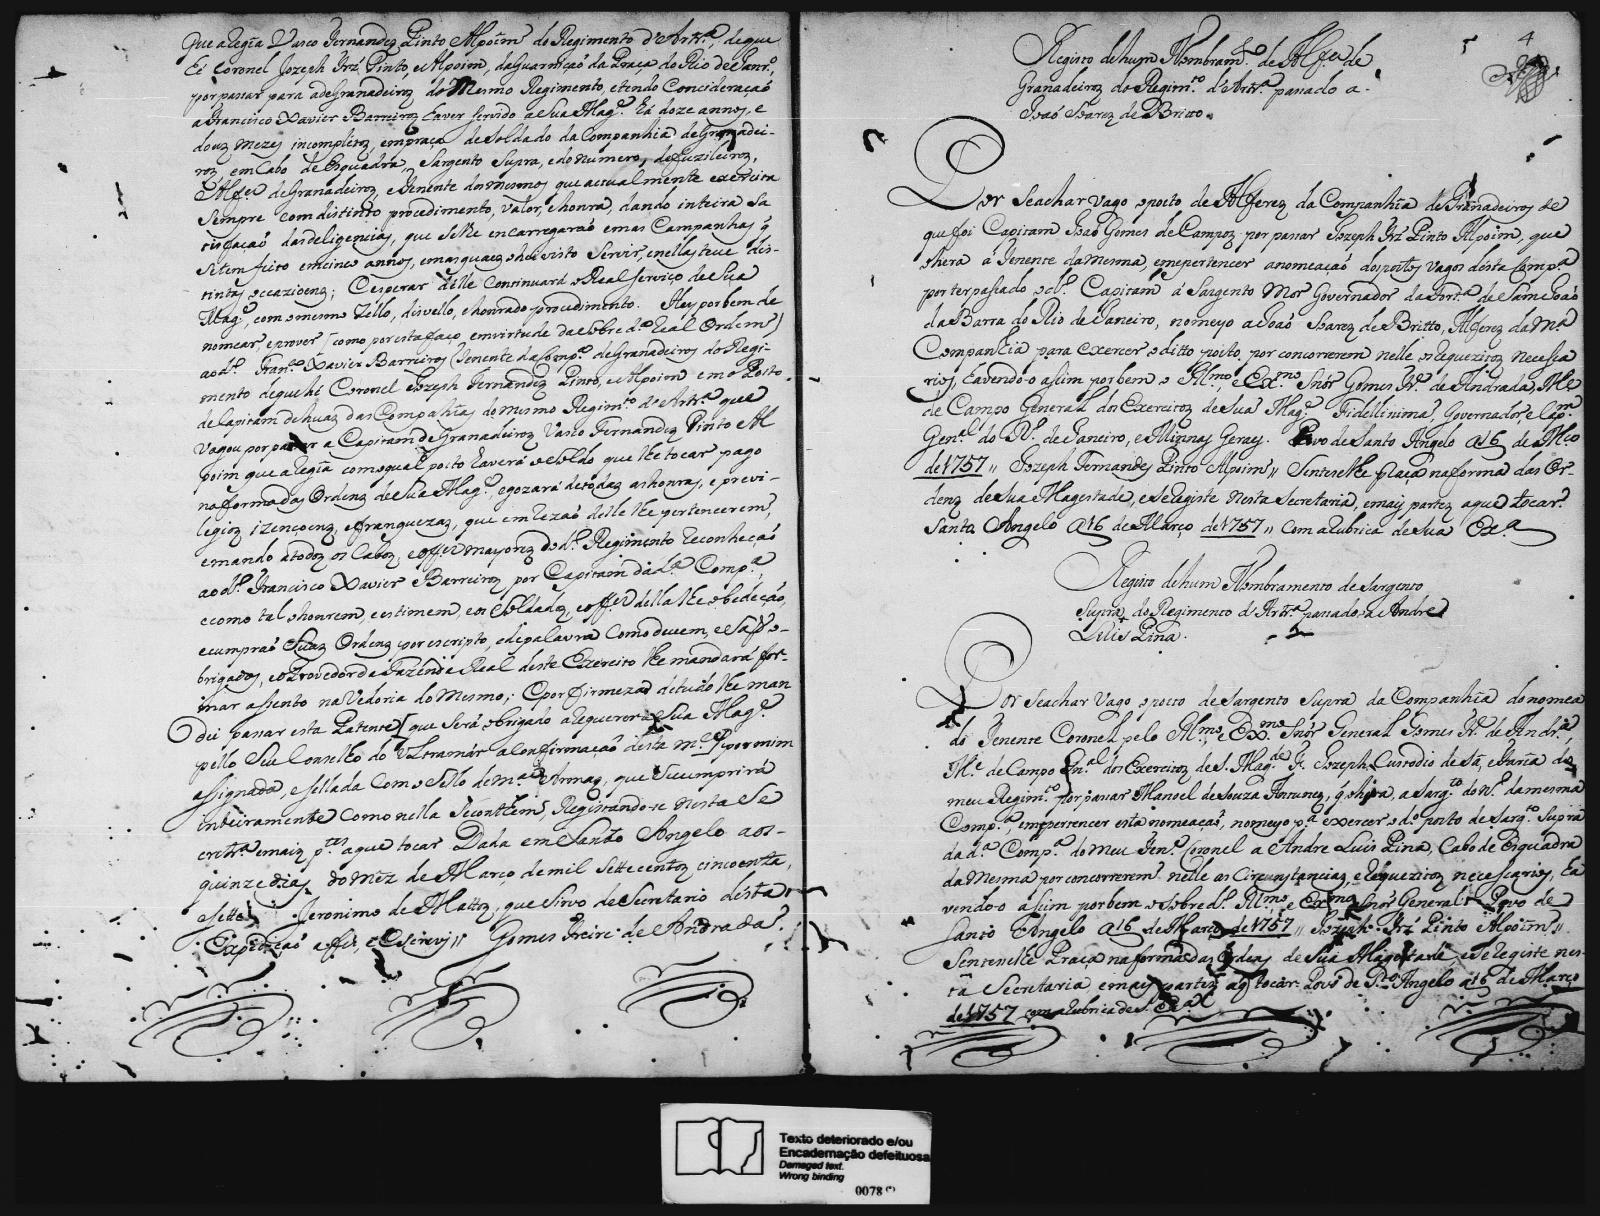 que a Regia Vasco Fernandez Pinto Alpoim do Regimento d'Artr.ª, de que
hé Coronel Jozeph Frz' Pinto, e Alpoim, da guarnição da Praça do Rio de Janr.º,
por passar para a de granadeiroz do Mesmo Regimento, e tendo Concideração
a Francisco Xavier Barreiroz haver servido a Sua Mag.e há doze annos, e
douz mezes incompletoz, em praça de Soldado da Companhia de Granadei-
roz, em Cabo de Esquadra, Sargento Supra, e do numero, de fuzileiroz,
e Alfer de Granadeiroz e Thenente dos mesmos que actualmente exercita
Sempre com distinto procedimento, valor, e honra, dando inteira Sa
tisfação das deligencias, que se lhe encarregarão e nas Campanhas q
se tem feito em cinco annos, em as quaes o hei visto Servir, e nellas teve dis-
tintas occazioenz; E esperar delle Continuará o Real serviço de Sua
Mag.e, com o mesmo Zello, disvello, e honrado procedimento. Hey por bem de
nomear, e prover [como por esta faço em virtude da sobre d.ª Real Ordem]
ao d.º Fran.co Xavier Barreiros Thenente da Comp.ª de Granadeiros do Regi-
mento de que hé Coronel Jozeph Fernandez Pinto, e Alpoim em o Posto
de Capitam de huaz das Companhias do mesmo Regim.to d'Artr.ª que
Vagou por passar a Capitam de Granadeiroz Vasco Fernandez Pinto e Al
poim que a Regia com o qual posto haverá o Soldo que lhe tocar pago
na forma das Ordenz de Sua Mag.e, e gozará de todaz as honras, e previ-
legioz izençoenz, e franquezaz, que em rezão delle lhe pertencerem,
e mando a todoz os Caboz, e offer mayorez do d.º Regimento reconheção
ao d.º Francisco Xavier Barreiroz por Capitam da d.ª Comp.ª,
e como tal o honrem, e estimem, e os Soldadoz, e offer della lhe obedeção,
e cumprão Suaz Ordenz por escripto, e de palavra Como devem, e São o-
brigados, e o Provedor da Fazenda Real deste Exercito lhe mandará for-
mar assento na Vedoria do Mesmo; E por firmeza de tudo lhe man
dei passar esta Patente [que Será obrigado a requerer a Sua Mag.e
pello Seu Conselho do Ultramár a Confirmação desta] por mim
assignada, e sellada Com o Sello de m.as Armaz, que se cumprirá
inteiramente Como nella Se contêm, Registando-se nesta Se
cretr.ª e maiz p.tes a que tocar Dada em Santo Angelo aos-
quinze dias do Mêz de Março de mil Settecentoz cincoenta,
e sette. Jeronimo de Mattoz, que Sirvo de Secretario désta
Expedição a fiz, e Escrevi // Gomes Freire de Andrada.
4
Registo de hum Nombram.to de Alfer de
Granadeiroz do Regim.to d'Artr.ª passado a
João Soarez de Britto.
Por Se achar Vago o posto de Alferez da Companhia de Granadeiros de
que foi Capitam João Gomes de Campoz por passar Jozeph Frz' Pinto Alpoim, que
o hera á Tenente da mesma, e me pertencer a nomeação dos postos Vagos désta Comp.ª
por ter passado o d.º Capitam á Sargento Mór Governador da Fort.ª de Sam João
da Barra do Rio de Janeiro, nomeyo a João Soarez de Britto, Alferez da m.ma
Companhia para exercer o ditto posto, por concorrerem nelle os Requezitoz neceça
rios, havendo-o assim por bem o Ill.mo e Ex.mo Snór Gomes Fr.e de Andrada, M.e
de Campo General dos Exercitoz de Sua Mag.e Fidellissima, Governador, e Cap.m
Gen.al do R.º de Janeiro, e Minnas Geraes. Povo de Santo Angelo a 16 de M.ço
de 1757 // Jozeph Fernandes Pinto Alpoim // Sentese lhe praça na forma das Or-
denz de Sua Magestade, e Se registe nesta Secretaria, e mais partez a que tocar.
Santo Angelo a 16 de Março de 1757 // Com a Rubrica de Sua Ex.ª
Registo de hum Nombramento de Sargento
Supra, do Regimento d'Artr.ª passado a Andre
Luis Pina.
Por Se achar Vago o posto de Sargento Supra da Companhia do nomea
do Tenente Coronel pelo Ill.mo e Ex.mo Snór General Gomes Fr.e de Andr.ª,
M.e de Campo Gn.al dos Exercitoz de S. Mag.de F. Jozeph Custodio de Sá, e Faria do
meu Regim.to por passar Manoel de Souza Antunez, q o hera, a Sarg.to do N.º da mesma
Comp.ª, e me pertencer esta nomeação, nomeyo p.ª exercer o d.º posto de Sarg.to Supra
da d.ª Comp.ª do meu Ten.e Coronel a Andre Luis Pina, Cabo de Esquadra
da Mesma por concorrerem nelle as Circunstancias, e Requezitoz necessarios, há
vendo-o assim por bem o sobre d.º Ill.mo e Ex.mo Snór General Povo de
Santo Angelo a 16 de Março de 1757 // Jozeph Frz' Pinto Alpoim //
Sentese lhe Praça na forma das Ordens de Sua Magestade, e Se registe nes-
ta Secretaria e mais partez a q tocár. Povo de S.to Angelo a 16 de Março
de 1757 com a Rubrica de S. Ex.ª
Texto deteriorado e/ou
Encadernação defeituosa
Damaged text.
Wrong binding
0078